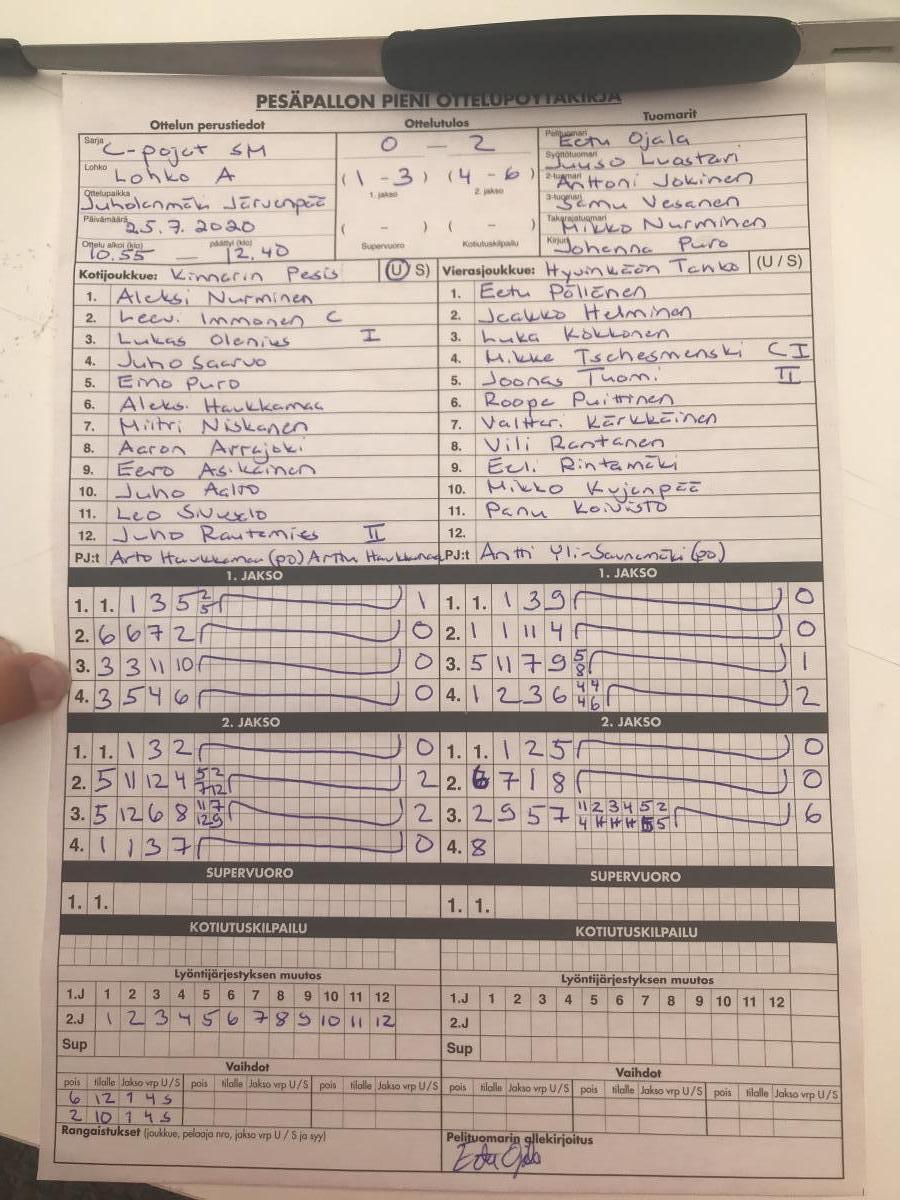 PESÄPALLON PIENI OTTELUPÖYTÄKIRJA
Ottelun perustiedot Ottelutulos Tuomarit
Sarja C-pojat SM
Lohko Lohko A
Ottelupaikka Juholanmäki Järvenpää
Päivämäärä 25.7.2020
Ottelu alkoi (klo) 10.55 — päättyi (klo) 12.40
0 — 2
(1 - 3) (4 - 6)
1. jakso 2. jakso
( - ) ( - )
Supervuoro Kotiutuskilpailu
Pelituomari Eetu Ojala
Syöttötuomari Juuso Luastari
2-tuomari Anttoni Jokinen
3-tuomari Samu Vesanen
Takarajatuomari Mikko Nurminen
Kirjuri Johanna Puro
Kotijoukkue: Kinnarin Pesis (U S)
1. Aleksi Nurminen
2. Leevi Immonen C
3. Lukas Olenius I
4. Juho Saarvo
5. Eino Puro
6. Aleksi Haukkamaa
7. Miitri Niskanen
8. Aaron Arrajoki
9. Eero Asikainen
10. Juho Aalto
11. Leo
12. Juho Rautamies II
PJ:t Arto Haukkamaa (po) Arttu Haukkamaa
Vierasjoukkue: Hyvinkään Tahko (U / S)
1. Eetu Pöllänen
2. Jaakko Helminen
3. Luka Kokkonen
4. Mikke Tschesmenski C I
5. Joonas Tuomi II
6. Roope Puittinen
7. Valtteri Kärkkäinen
8. Vili Rantanen
9. Eeli Rintamäki
10. Mikko Kujanpää
11. Panu Koivisto
12.
PJ:t Antti Yli-Saunamäki (po)
1. JAKSO
1. 1. 1 3 5 2 5 1
2. 6 6 7 2 0
3. 3 3 11 10 0
4. 3 5 4 6 0
1. JAKSO
1. 1. 1 3 9 0
2. 1 1 11 4 0
3. 5 11 7 9 5 8 1
4. 1 2 3 6 4 4 4 6 2
2. JAKSO
1. 1. 1 3 2 0
2. 5 11 12 4 5 2 7 12 2
3. 5 12 6 8 11 7 12 9 2
4. 1 1 3 7 0
2. JAKSO
1. 1. 1 2 5 0
2. 6 7 1 8 0
3. 2 9 5 7 11 2 3 4 5 2 6
4. 8
SUPERVUORO
1. 1.
SUPERVUORO
1. 1.
KOTIUTUSKILPAILU
KOTIUTUSKILPAILU
Lyöntijärjestyksen muutos
1.J 1 2 3 4 5 6 7 8 9 10 11 12
2.J 1 2 3 4 5 6 7 8 9 10 11 12
Sup
Lyöntijärjestyksen muutos
1.J 1 2 3 4 5 6 7 8 9 10 11 12
2.J
Sup
Vaihdot
pois tilalle Jakso vrp U/S pois tilalle Jakso vrp U/S pois tilalle Jakso vrp U/S
6 12 1 4 S
2 10 1 4 S
Vaihdot
pois tilalle Jakso vrp U/S pois tilalle Jakso vrp U/S pois tilalle Jakso vrp U/S
Rangaistukset (joukkue, pelaaja nro, jakso vrp U / S ja syy)
Pelituomarin allekirjoitus